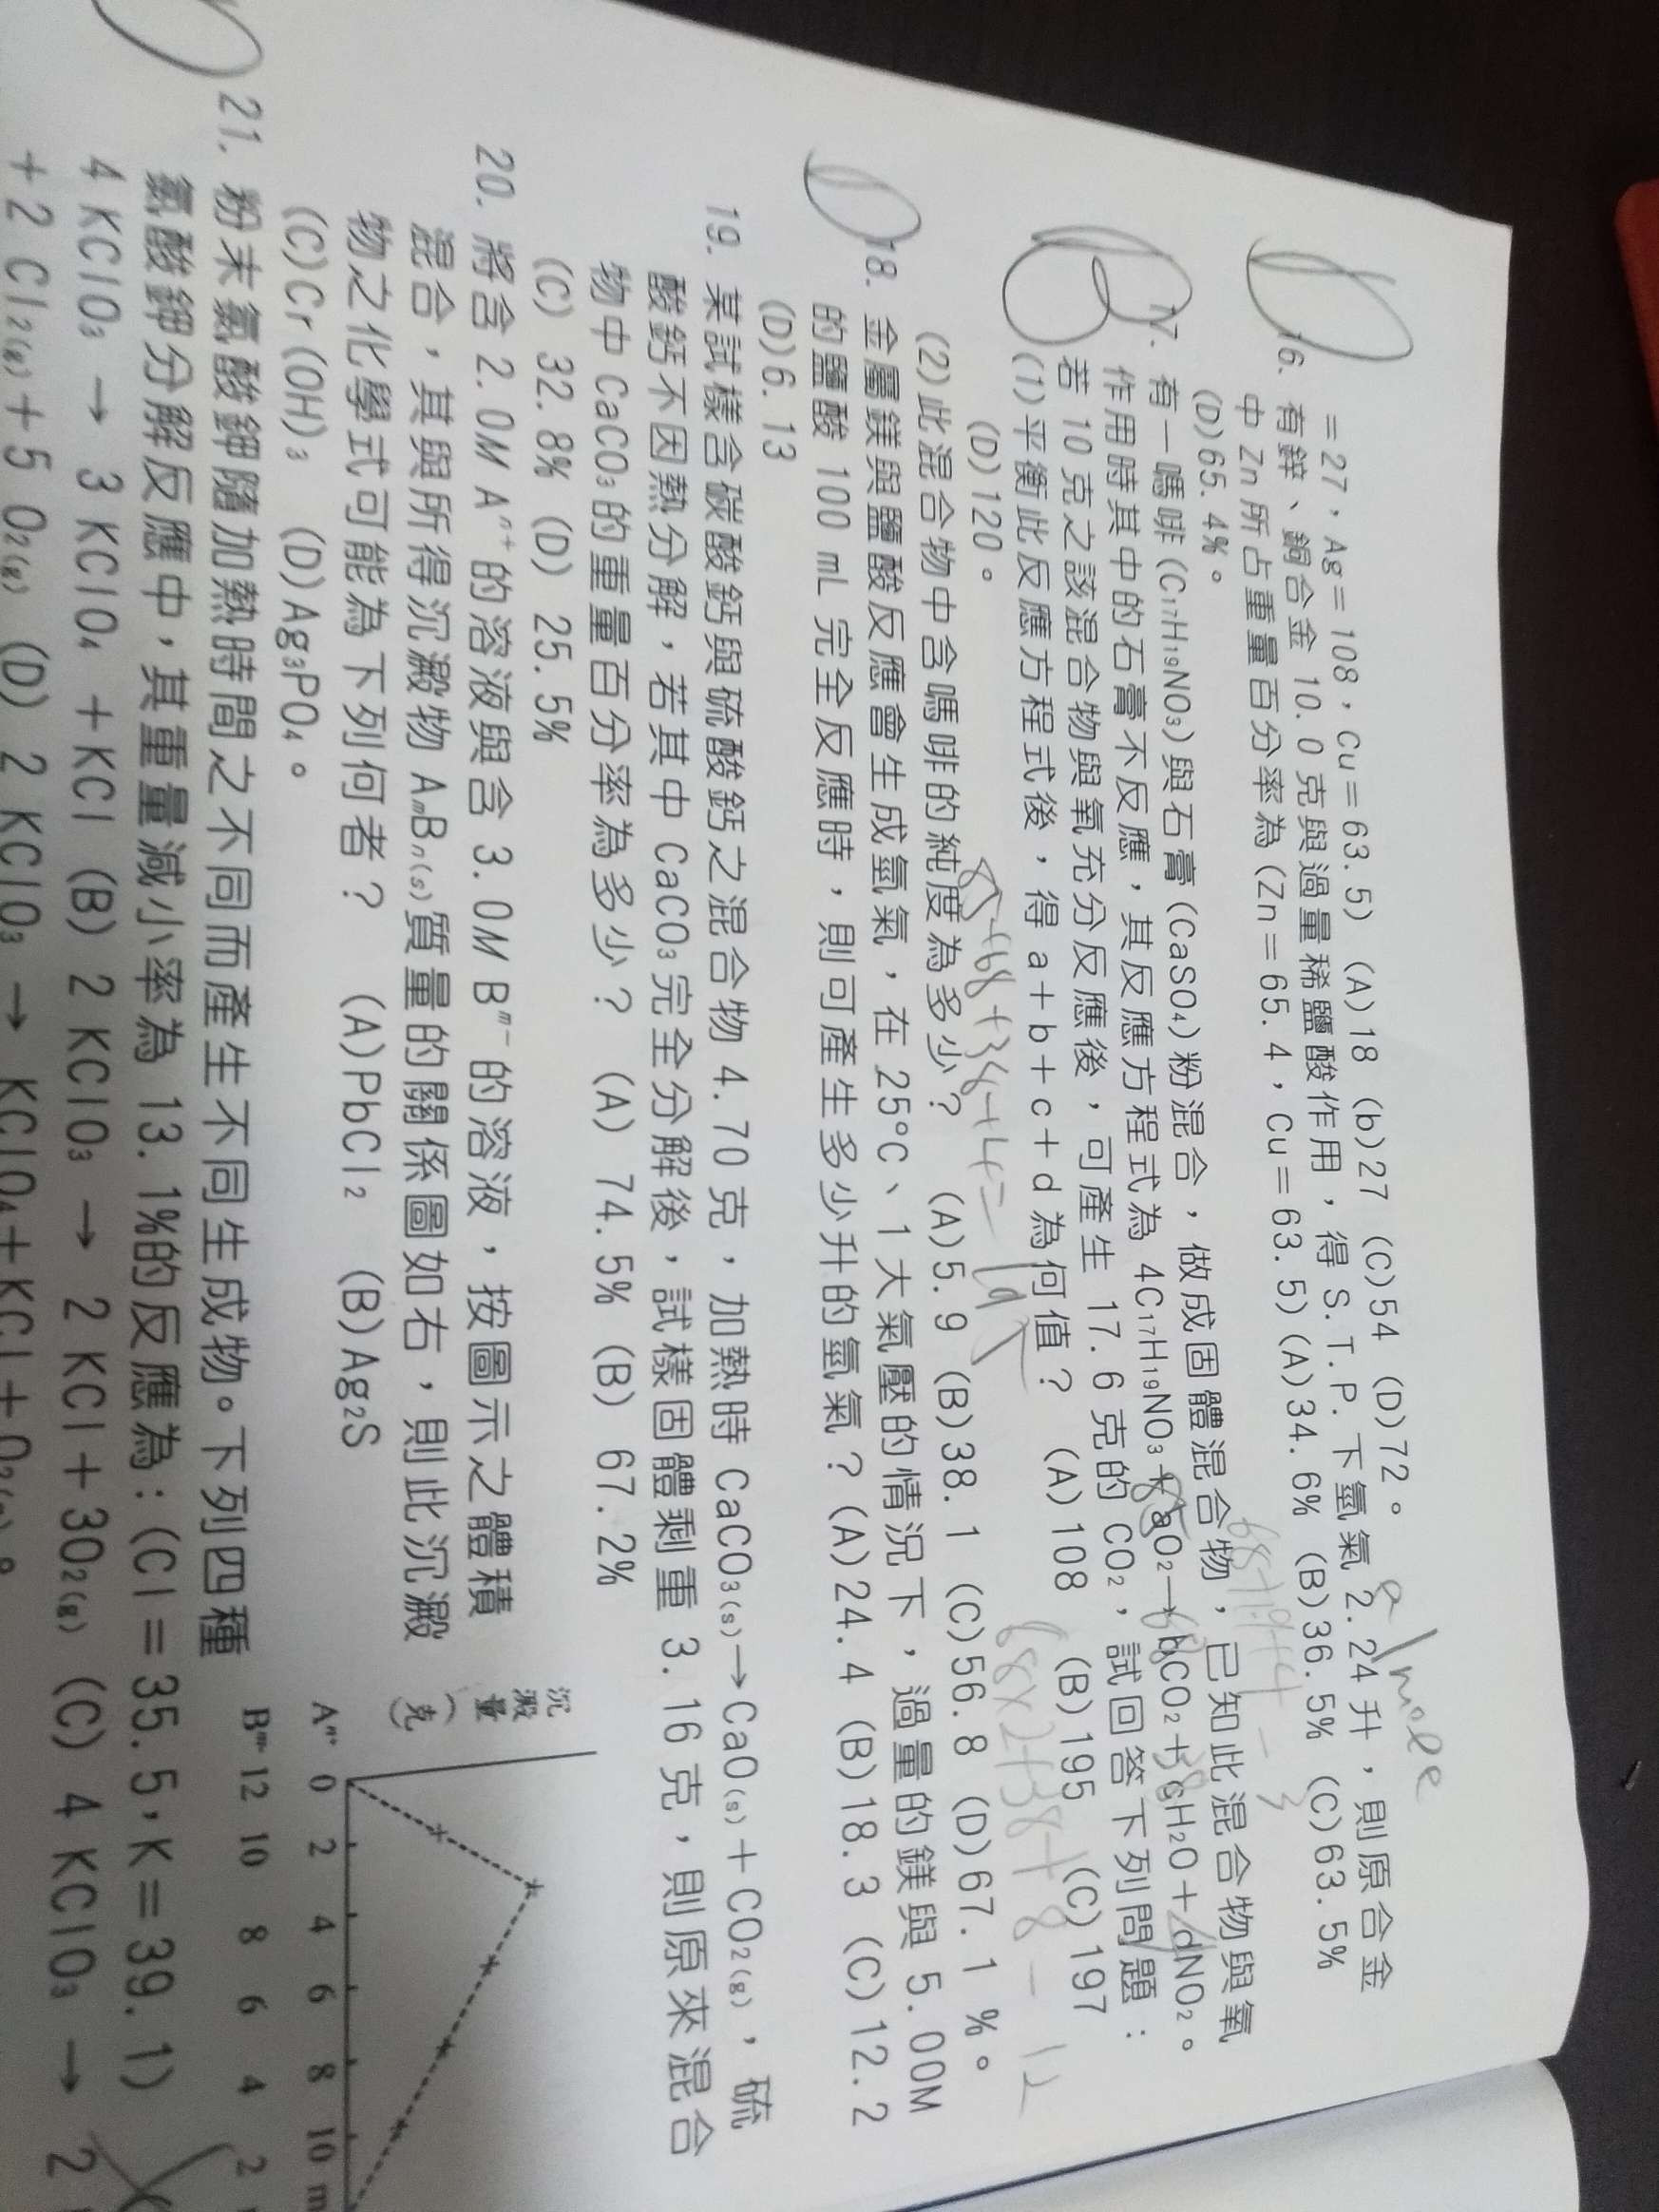 =27，Ag=108，Cu=63.5) (A)18 (b)27 (C)54 (D)72。
16. 有鋅、銅合金 10.0克與過量稀鹽酸作用，得 S.T.P. 下氫氣 2.24升，則原合金
中 Zn 所占重量百分率為(Zn=65.4，Cu=63.5)(A)34.6% (B)36.5% (C)63.5%
(D)65.4%。
mole
17. 有一嗎啡(C₁₇H₁₉NO₃)與石膏(CaSO₄)粉混合，做成固體混合物，已知此混合物與氧
作用時其中的石膏不反應，其反應方程式為 4C₁₇H₁₉NO₃+aO₂→bCO₂+cH₂O+dNO₂。
若 10克之該混合物與氧充分反應後，可產生 17.6克的 CO₂，試回答下列問題：
(1)平衡此反應方程式後，得 a+b+c+d為何值？ (A)108 (B)195 (C)197
(D)120。
85+68+38+4=
68×2+38+8-12
(2)此混合物中含嗎啡的純度為多少？ (A)5.9 (B)38.1 (C)56.8 (D)67.1 %。
18. 金屬鎂與鹽酸反應會生成氫氣，在25°C、1大氣壓的情況下，過量的鎂與 5.00M
的鹽酸 100 mL完全反應時，則可產生多少升的氫氣？(A)24.4 (B)18.3 (C)12.2
(D)6.13
19. 某試樣含碳酸鈣與硫酸鈣之混合物 4.70克，加熱時 CaCO₃₍ₛ₎→CaO₍ₛ₎+CO₂₍g₎，硫
酸鈣不因熱分解，若其中 CaCO₃完全分解後，試樣固體剩重 3.16克，則原來混合
物中 CaCO₃的重量百分率為多少？ (A) 74.5% (B) 67.2%
(C) 32.8% (D) 25.5%
20. 將含 2.0M Aⁿ⁺的溶液與含 3.0M Bᵐ⁻的溶液，按圖示之體積
混合，其與所得沉澱物 AₘBₙ₍ₛ₎質量的關係圖如右，則此沉澱
物之化學式可能為下列何者？ (A)PbCl₂ (B)Ag₂S
(C)Cr(OH)₃ (D)Ag₃PO₄。
沉
澱
量
(克)
Aⁿ⁺ 0 2 4 6 8 10 m
Bᵐ⁻ 12 10 8 6 4 2
21. 粉末氯酸鉀隨加熱時間之不同而產生不同生成物。下列四種
氯酸鉀分解反應中，其重量減小率為 13.1%的反應為：(Cl=35.5，K=39.1)
4 KClO₃ → 3 KClO₄ +KCl (B) 2 KClO₃ → 2 KCl+3O₂₍g₎ (C) 4 KClO₃ → 2
+2 Cl₂₍g₎+5 O₂₍g₎ (D) 2 KClO₃ → KClO₄+KCl+O₂₍g₎。